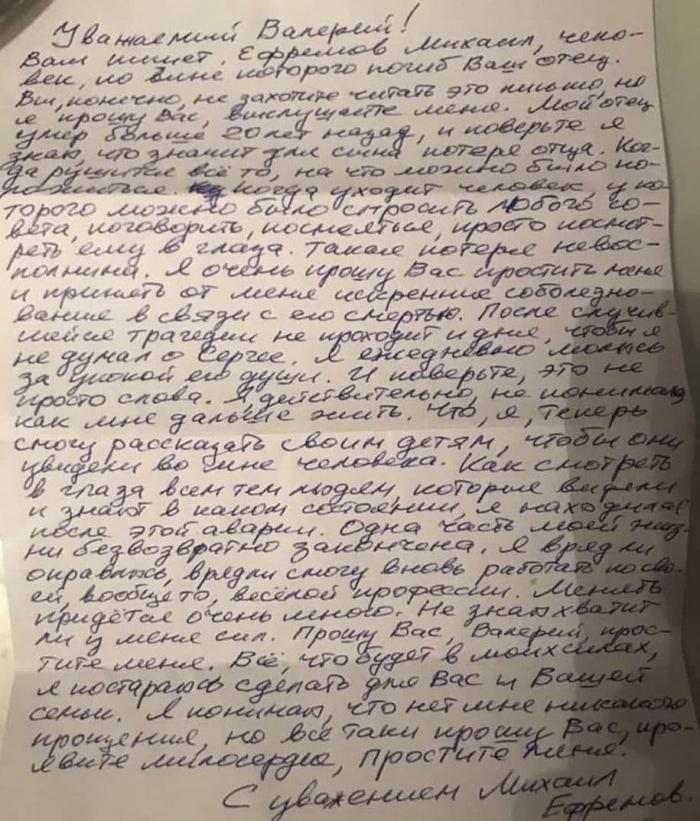 Уважаемый Валерий!
Вам пишет, Ефремов Михаил, чело-
век, по вине которого погиб Ваш отец.
Вы, конечно, не захотите читать это письмо, но
я прошу Вас, выслушайте меня. Мой отец
умер больше 20 лет назад, и поверьте я
знаю, что значит для сына потеря отца. Ког-
да рушится всё то, на что можно было по-
ложиться. когда уходит человек у ко
торого можно было спросить любого со-
вета, поговорить, посмеяться, просто посмот-
реть ему в глаза. Такая потеря невос-
полнима. Я очень прошу Вас простить меня
и принять от меня искренние соболезно-
вание в связи с его смертью. После случив-
шейся трагедии не проходит и дня, чтобы я
не думал о Сергее. Я ежедневно молюсь
за упокой его души. И поверьте, это не
просто слова. Я действительно, не понимаю,
как мне дальше жить. Что, я, теперь
смогу рассказать своим детям, чтобы они
увидели во мне человека. Как смотреть
в глаза всем тем людям, которые видели
и знают в каком состоянии, я находился
после этой аварии. Одна часть моей жиз-
ни безвозвратно закончена. Я вряд ли
оправлюсь, врядли смогу вновь работать по сво-
ей, вообще то, весёлой профессии. Менять
придётся очень много. Не знаю хватит
ли у меня сил. Прошу Вас, Валерий, прос-
тите меня. Всё, что будет в моих силах,
я постараюсь сделать для Вас и Вашей
семьи. Я понимаю, что нет мне никакого
прощения, но всё таки прошу Вас, про-
явите милосердие, простите меня.
С уважением Михаил
Ефремов.